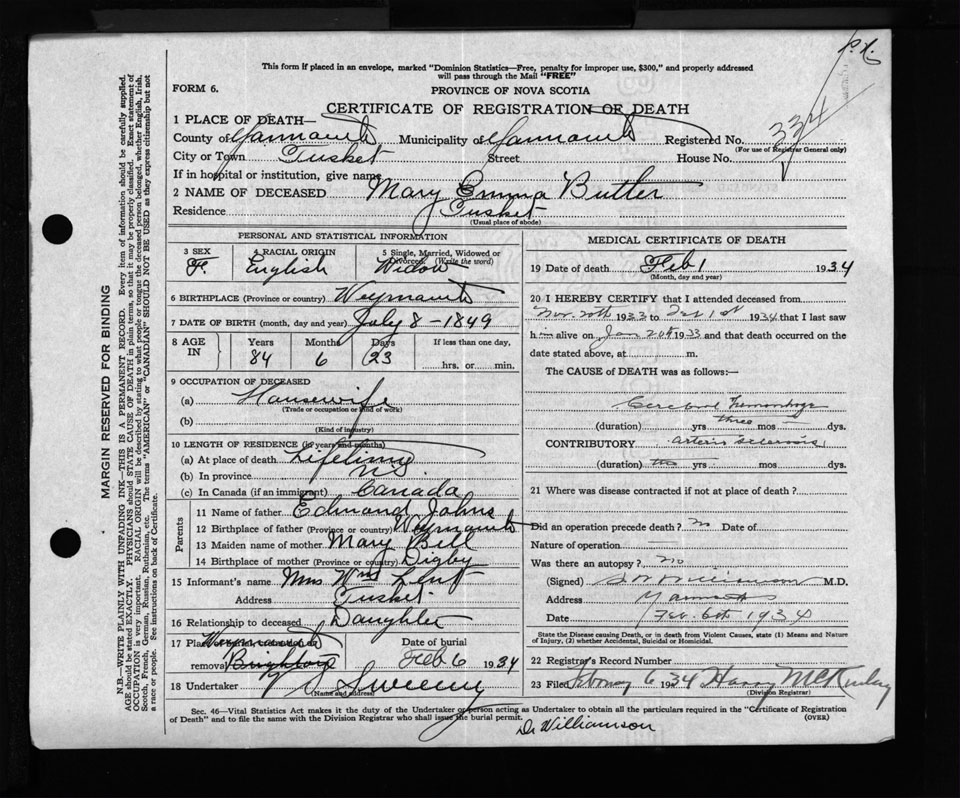 P. X.
This form if placed in an envelope, marked "Dominion Statistics—Free, penalty for improper use, $300," and properly addressed
will pass through the Mail "FREE"
FORM 6.
PROVINCE OF NOVA SCOTIA
CERTIFICATE OF REGISTRATION OF DEATH
1 PLACE OF DEATH—
County of Yarmouth Municipality of Yarmouth Registered No. 334
(For use of Registrar General only)
City or Town Tusket Street House No.
If in hospital or institution, give name
2 NAME OF DECEASED Mary Emma Butler
Residence Tusket
(Usual place of abode)
PERSONAL AND STATISTICAL INFORMATION
3 SEX 4 RACIAL ORIGIN 5 Single, Married, Widowed or Divorced. (Write the word)
F. English Widow
6 BIRTHPLACE (Province or country) Weymouth
7 DATE OF BIRTH (month, day and year) July 8 - 1849
8 AGE IN Years Months Days If less than one day,
84 6 23 hrs. or min.
9 OCCUPATION OF DECEASED
(a) Housewife
(Trade or occupation or kind of work)
(b)
(Kind of industry)
10 LENGTH OF RESIDENCE (in years and months)
(a) At place of death Lifetime
(b) In province
(c) In Canada (if an immigrant) Canada
Parents
11 Name of father Edmond Johns
12 Birthplace of father (Province or country) Weymouth
13 Maiden name of mother Mary Bell
14 Birthplace of mother (Province or country) Digby
15 Informant's name Mrs Wm Lent
Address Tusket
16 Relationship to deceased Daughter
17 Place of burial or removal Weymouth Date of burial Feb 6 1934
18 Undertaker Sweeny
(Name and address)
MEDICAL CERTIFICATE OF DEATH
19 Date of death Feb 1 1934
(Month, day and year)
20 I HEREBY CERTIFY that I attended deceased from
Nov. 20th 1933 to Feb 1st 1934 that I last saw
h alive on Jan 20th 1933 and that death occurred on the
date stated above, at m.
The CAUSE of DEATH was as follows:—
Cerebral Hemorrhage
(duration) yrs three mos dys.
CONTRIBUTORY arterio sclerosis
(duration) yrs mos. dys.
21 Where was disease contracted if not at place of death?
Did an operation precede death? no Date of
Nature of operation
Was there an autopsy? no
(Signed) Williamson M.D.
Address Yarmouth
Date Feb. 6th 1934
State the Disease causing Death, or in death from Violent Causes, state (1) Means and Nature
of Injury, (2) whether Accidental, Suicidal or Homicidal.
22 Registrar's Record Number
23 Filed February 6 1934 Harry McKinlay
(Division Registrar)
Sec. 46—Vital Statistics Act makes it the duty of the Undertaker or person acting as Undertaker to obtain all the particulars required in the "Certificate of Registration
of Death" and to file the same with the Division Registrar who shall issue the burial permit.
(OVER)
Dr Williamson
MARGIN RESERVED FOR BINDING
N.B.—WRITE PLAINLY WITH UNFADING INK—THIS IS A PERMANENT RECORD. Every item of information should be carefully supplied.
AGE should be stated EXACTLY. PHYSICIANS should STATE CAUSE OF DEATH in plain terms, so that it may be properly classified. Exact statement of
OCCUPATION is very important. RACIAL ORIGIN will be described by stating to what people or tongue the deceased person belonged, whether English, Irish,
Scotch, French, German, Russian, Ruthenian, etc. The terms "AMERICAN" or "CANADIAN" SHOULD NOT BE USED as they express citizenship but not
a race or people. See instructions on back of Certificate.